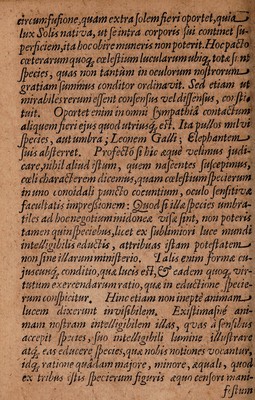 circumfusione, quam extra solem fieri oportet, quia
lux Solis nativa, ut se intra corporis sui continet su-
perficiem, ita hoc obire muneris non poterit. Hoc pacto
cæterarum quoq, cælestium lucularum ubiq, totæ sunt
species, quas non tantùm in oculorum nostrorum
gratiam summus conditor ordinavit. Sed etiam ut
mirabiles rerum essent consensus vel dissensus, constit
tuit. Oportet enim in omni sympathia contactum
aliquem fieri ejus quod utriusq, est. Ita pullos milvi
species, aut umbra; Leonem Galli; Elephantem
suis absterret. Profectò si hic æque velimus judi-
care, nihil aliud istum, quem nascentes suscepimus,
cæli characterem dicemus, quam cælestium specierum
in uno conoidali puncto coeuntium, oculo sensitivæ
facultatis impressionem: Quod si illæ species umbra-
tiles ad hoc negotium idoneæ visæ sint, non poteris
tamen quin speciebus, licet ex sublimiori luce mundi
intelligibilis eductis, attribuas istam potestatem
non sine illarum ministerio. Talis enim formæ cu-
juscunq, conditio, quæ lucis est, & eadem quoq, vir-
tutum exercendarum ratio, quæ in eductione specie-
rum conspicitur. Hinc etiam non ineptè animam
lucem dixerunt invisibilem. Existimasne ani-
mam nostram intelligibilem illas, quas à sensibus
accepit species, suo intelligibili lumine illustrare
atq, eas educere species, quæ nobis notiones vocantur,
idq, ratione quâdam majore, minore, æquali, quod
ex tribus istis specierum figuris æquo censori mani-
festum